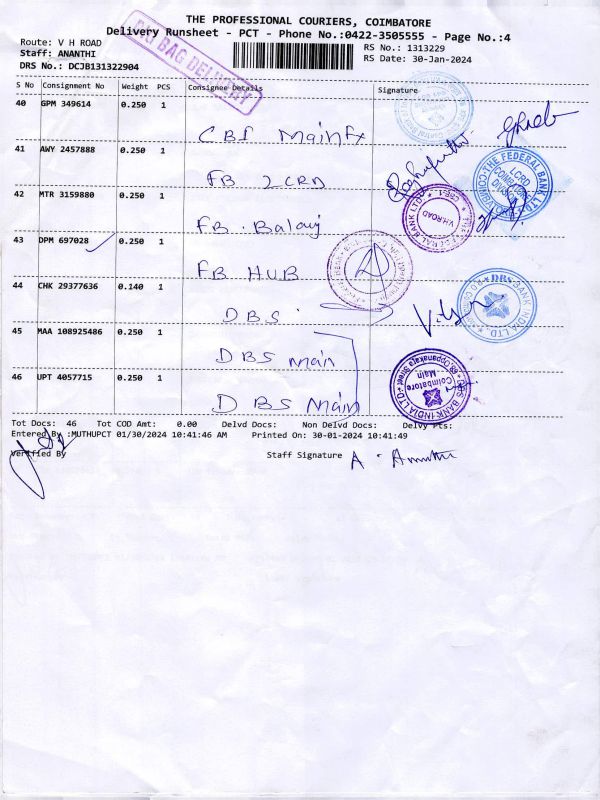 THE PROFESSIONAL COURIERS, COIMBATORE
Delivery Runsheet - PCT - Phone No.:0422-3505555 - Page No.:4
Route: V H ROAD
Staff: ANANTHI
DRS No.: DCJB131322904
RS No.: 1313229
RS Date: 30-Jan-2024
BIG BAG DELIVERY
S No Consignment No Weight PCS Consignee Details Signature
40 GPM 349614 0.250 1
CBI Main Fx
41 AWY 2457888 0.250 1
FB LCRD
THE FEDERAL BANK LTD
LCRD
COIMBATORE
DIVISION
42 MTR 3159880 0.250 1
FB. Balaji
V.H.ROAD
CBE-1
43 DPM 697028 0.250 1
FB HUB
44 CHK 29377636 0.140 1
DBS
DBS BANK INDIA LTD
45 MAA 108925486 0.250 1
DBS main
46 UPT 4057715 0.250 1
DBS Main
DBS BANK INDIA LTD
Oppanakara Street
Coimbatore
Main
Tot Docs: 46 Tot COD Amt: 0.00 Delvd Docs: Non Delvd Docs: Delvy Pts:
Entered By :MUTHUPCT 01/30/2024 10:41:46 AM Printed On: 30-01-2024 10:41:49
Verified By Staff Signature A. Ananthi